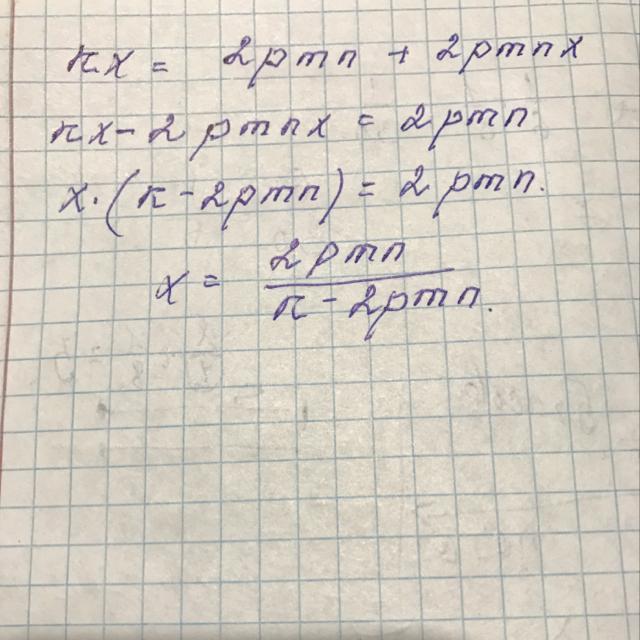 кx = 2pmn + 2pmnx
кx - 2pmnx = 2pmn
x·(к - 2pmn) = 2pmn.
x = 2pmn / к - 2pmn.